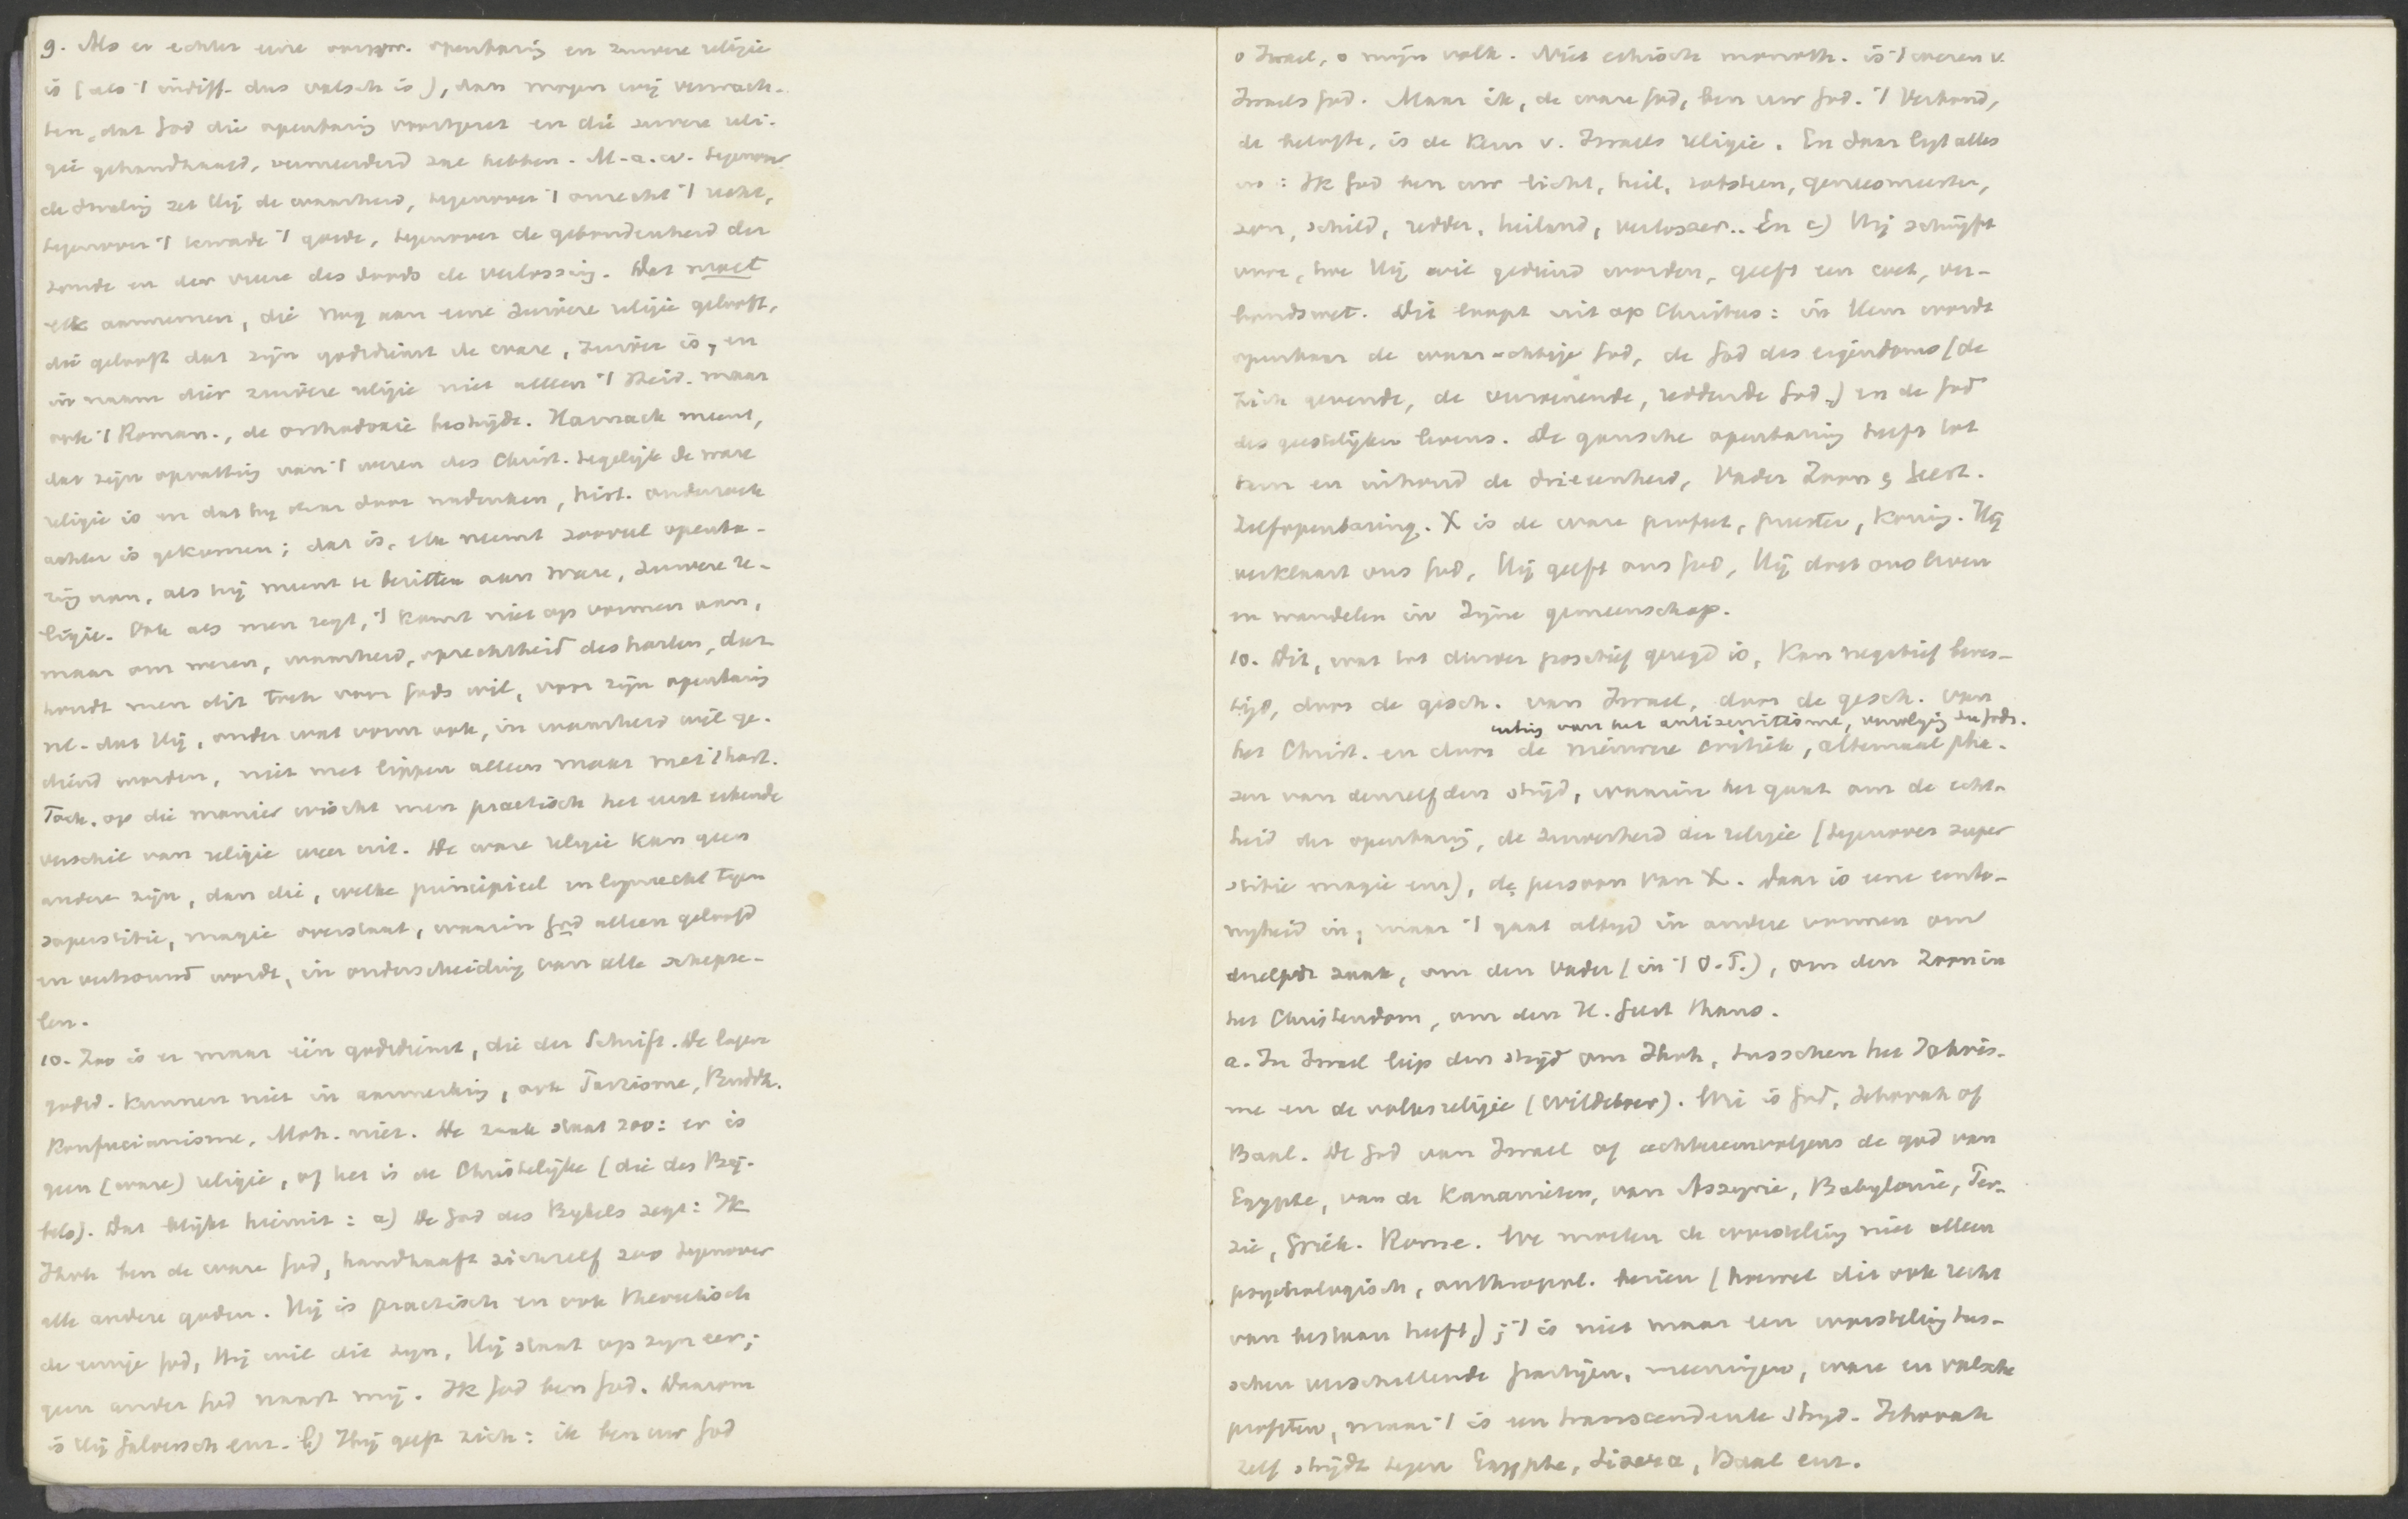 9. Als er echter eene oorspr. openbaring en zuivere religie
is (als 't indiff. dus valsch is), dan mogen wij verwach-
ten, dat God die openbaring voortgezet en die zuivere reli-
gie gehandhaafd, vermeerderd zal hebben. M.a.w. tegenover
de dwaling zet Hij de waarheid, tegenover 't onrecht 't recht,
tegenover 't kwade 't goede, tegenover de gebondenheid der
zonde en der vreeze des doods de verlossing. Dat moet
elk aannemen, die nog aan eene zuivere religie gelooft,
die gelooft dat zijn godsdienst de ware, zuiver is, en
in naam dier zuivere religie niet alleen 't Heid. maar
ook 't Roman., de orthodoxie bestrijdt. Harnack meent,
dat zijn opvatting van 't wezen des Christ. tegelijk de ware
religie is en dat hij daar door nadenken, hist. onderzoek
achter is gekomen; dat is, elk neemt zooveel openba-
ring aan, als hij meent te bezitten aan ware, zuivere re-
ligie. Ook als men zegt, 't komt niet op vormen aan,
maar om wezen, waarheid, oprechtheid des harten, dan
houdt men dit toch voor Gods wil, voor zijn openbaring
nl. dat Hij, onder wat vorm ook, in waarheid wil ge-
diend worden, niet met lippen alleen maar met 't hart.
Toch, op die manier wischt men practisch het eerst erkende
verschil van religie weer uit. De ware religie kan geen
andere zijn, dan die, welke principieel en lijnrecht tgen
superstitie, magie overstaat, waarin God alleen geloofd
en vertrouwd wordt, in onderscheiding van alle schepse-
len.
10. Zoo is er maar één godsdienst, die der Schrift. De lagere
godsd. kunnen niet in aanmerking, ook Parzisme, Buddh.
Konfucianisme, Moh. niet. De zaak staat zoo: er is
geen (ware) religie, of het is de Christelijke (die des Bij-
bels). Dat blijkt hieruit: a) De God des Bijbels zegt: Ik
Jhvh ben de ware God, handhaaft zichzelf zoo tegenover
alle andere goden. Hij is practisch en ook theoretisch
de eenige God, Hij wil dit zijn, Hij staat op zijn eer;
geen ander God naast mij. Ik God ben God. Daarom
is Hij jaloersch enz. b) Hij geeft zich: ik ben uw God
o Israel, o mijn volk. Niet ethisch monoth. is 't wezen v.
Israels God. Maar ik, de ware God, ben uw God. 't Verbond,
de belofte, is de kern v. Israels religie. En daar ligt alles
in: Ik God ben uw licht, heil, rotssteen, geneesmeester,
zon, schild, redder, heiland, verlosser.. En c) Hij schrijft
voor, hoe Hij wil gediend worden, geeft een wet, ver-
bondswet. Dit loopt uit op Christus: in Hem wordt
openbaar de waarachtige God, de God des eigendoms (de
zich gevende, de verzoenende, reddende God) en de God
des geestelijken levens. De gansche openbaring heeft tot
kern en inhoud de drieeenheid, Vader Zoon & Geest.
Zelfopenbaring. X is de ware profeet, priester, koning. Hij
verklaart ons God, Hij geeft ons God, Hij doet ons leven
en wandelen in Zijne gemeenschap.
10. Dit, wat tot dusver positief gezegd is, kan negatief beves-
tigd, door de gesch. van Israel, door de gesch. van
uiting van het antisemitisme, vervolging der Joden.
het Christ. en door de nieuwere critiek, altemaal pha-
zen van denzelfden strijd, waarin het gaat om de echt-
heid der openbaring, de zuiverheid der religie (tegenover super
stitie magie enz), de persoon van X. Daar is eene eento-
nigheid in, maar 't gaat altijd in andere vormen om
dezelfde zaak, om den Vader (in 't O.T.), om den Zoon in
het Christendom, om den H. Geest thans.
a. In Israel liep den strijd om Jhvh, tusschen het Jahvis-
me en de volksreligie (Wildeboer). Wie is God, Jehovah of
Baal. De God van Israel of achtereenvolgens de god van
Egypte, van de Kananieten, van Assyrie, Babylonie, Per-
zie, Griek. Rome. We moeten de worsteling niet alleen
psychologisch, anthropol. bezien (hoewel dit ook recht
van bestaan heeft); 't is niet maar een worsteling tus-
schen verschillende partijen, meeningen, ware en valsche
profeten, maar 't is een transcendente strijd. Jehovah
zelf strijdt tegen Egypte, Baal enz.